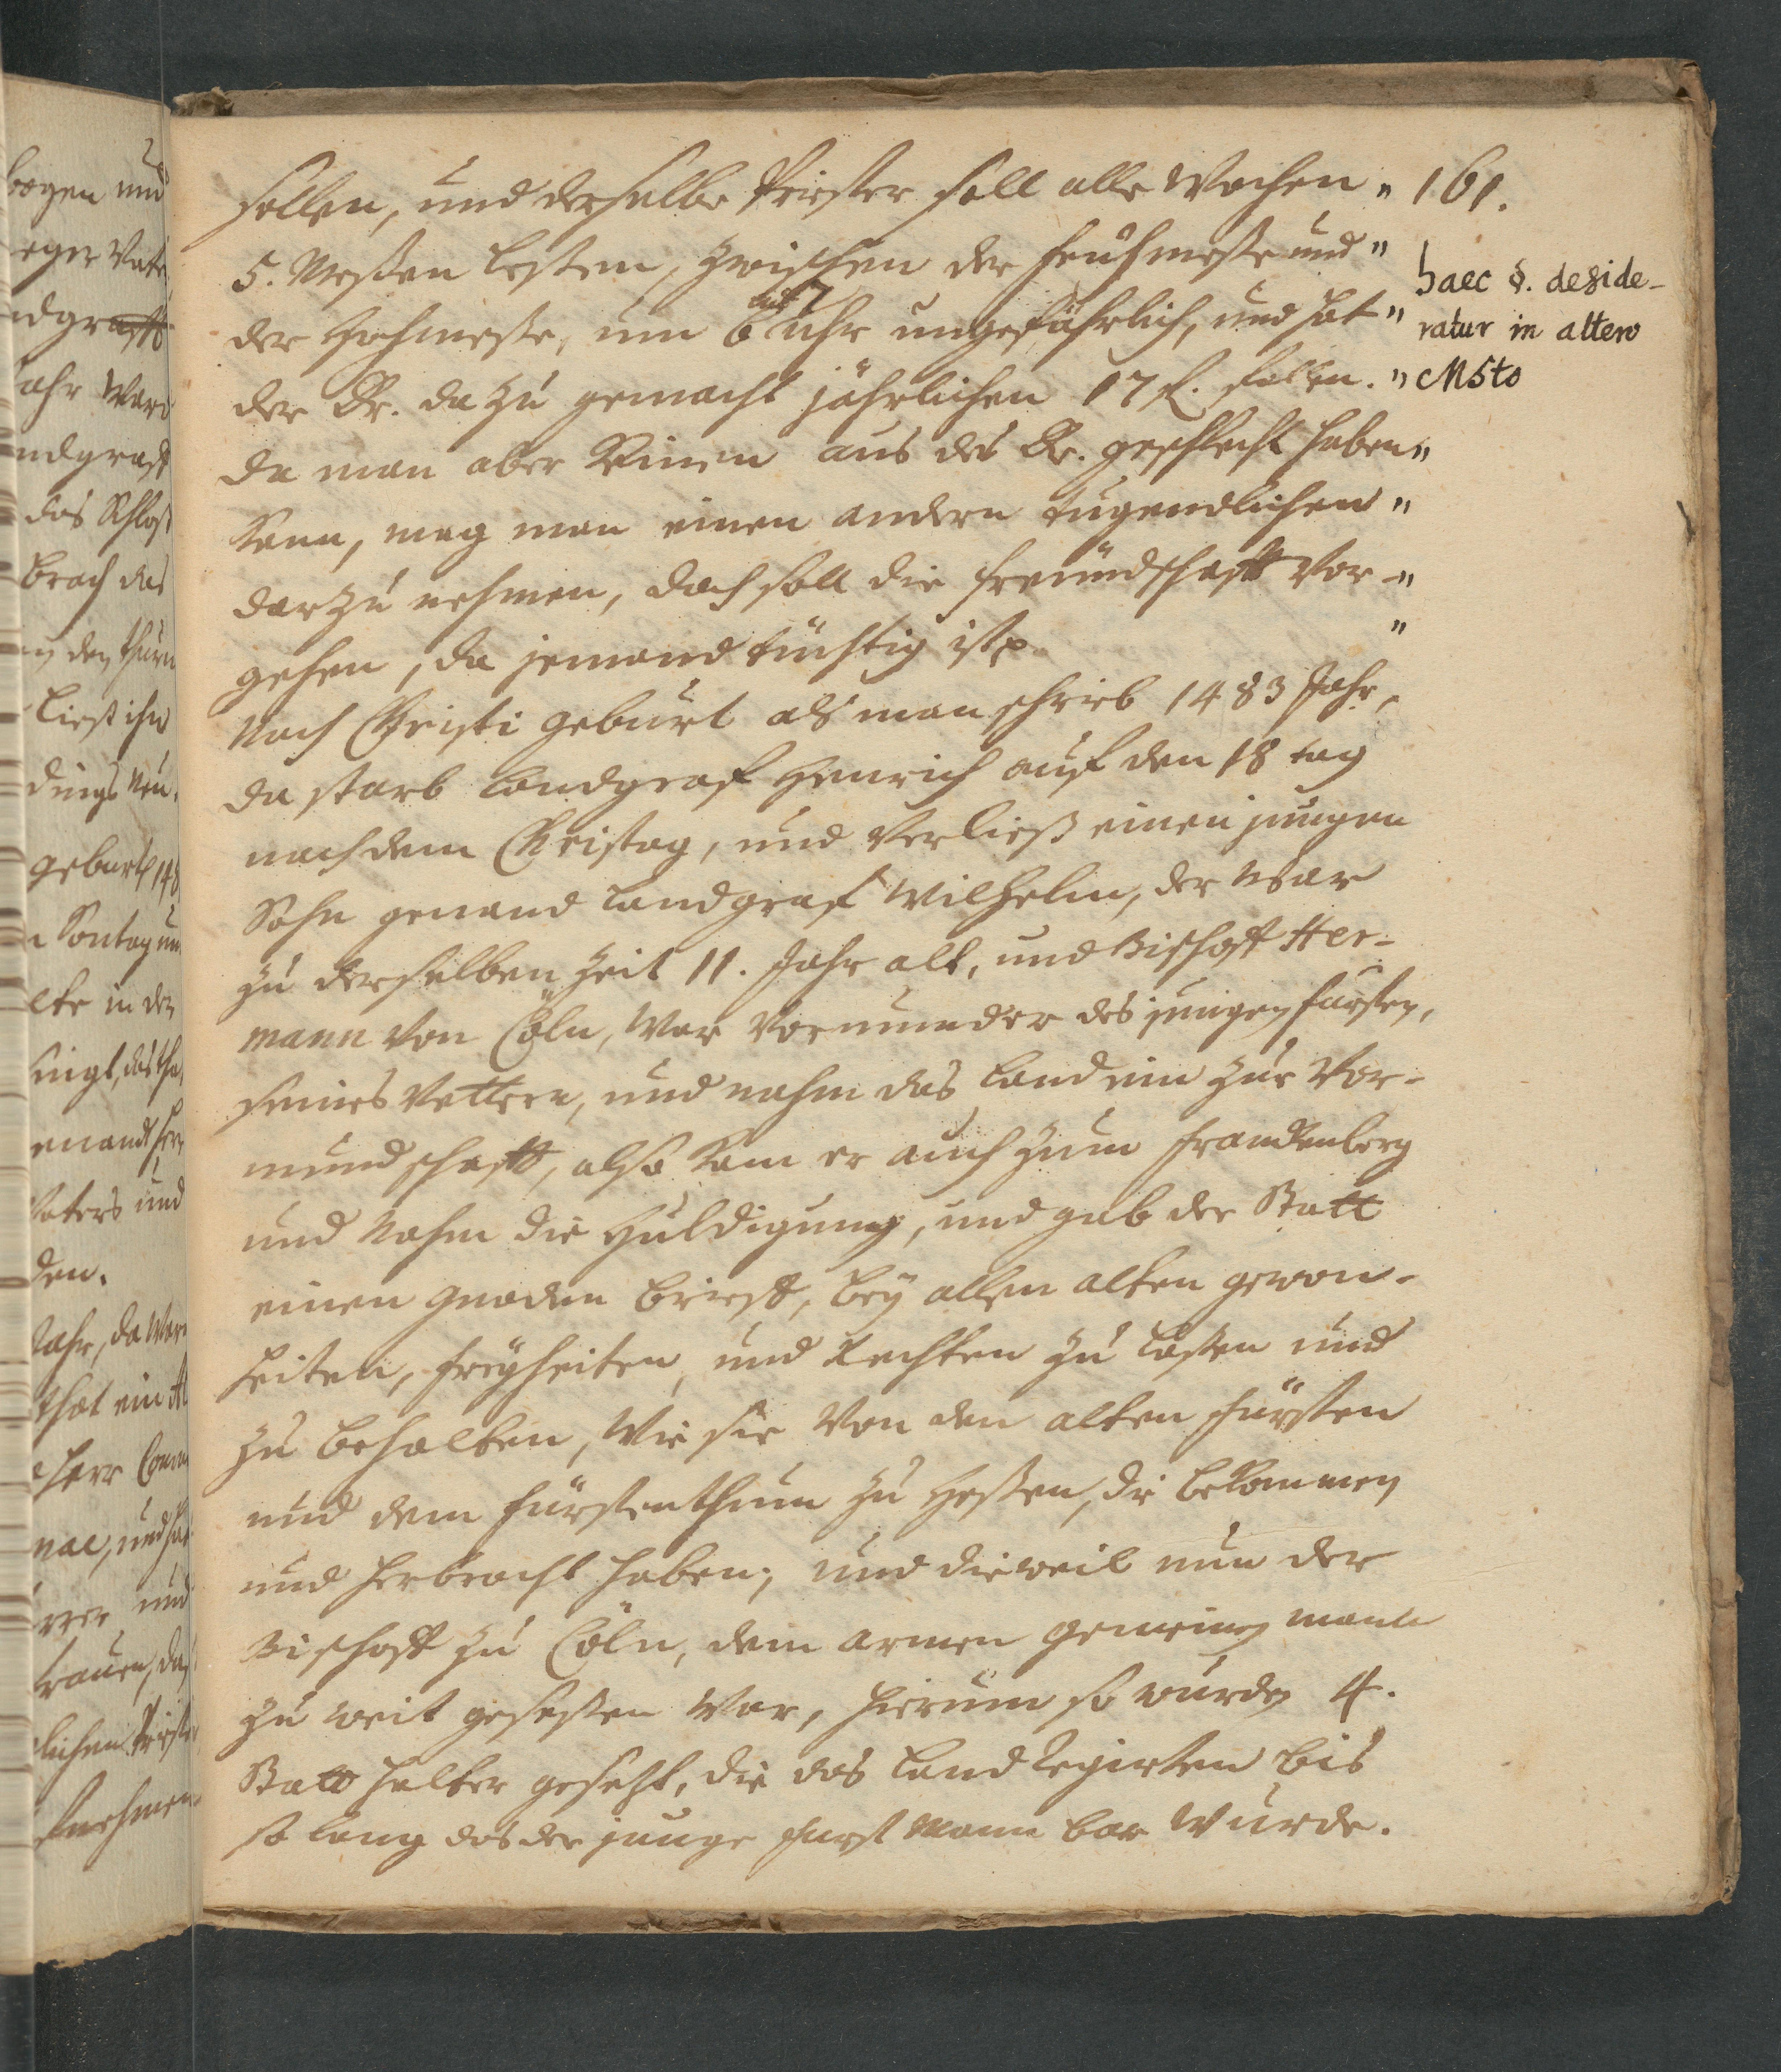 161.
sollen, und derselbe Priester soll alle Wochen "
5. Meßen lesten, zwischen der frühmeße und "
der Hohmeße, um 6 und 7 Uhr ungefährlich, und hat "
der Dr. dazu gemacht jährlichen 17 fl. fallen. "
da man aber Keinen aus des Dr. geschlecht haben "
Kann, mag man einen andern tugendlichen "
darzu nehmen, doch soll die freundschafft vor- "
gehen, da jemand tüchtig ist "
Nach Christi geburt als man schrieb 1483 Jahr,
da starb Landgraf Henrich auf den 18 tag
nach dem Christag, und verließ einen jungen
Sohn genand Landgraf Wilhelm, der war
zu derselben Zeit 11. Jahr alt, und Bischoff Her-
mann von Cöln, war vormunder des jungen fürsten,
seines Vettern, und nahm das Land ein zur Vor-
mundschafft, also kam er auch zum franckenberg
und Nahm die Huldigung, und gab der Statt
einen gnaden brieff, bey allen alten gewon-
heiten, freyheiten, und Rechten zu laßen und
zu behalten, wie sie von den alten fürsten
und dem fürstenthum zu Heßen, die bekommen
und herbracht haben; und dieweil nun der
Bischoff zu Cöln, dem armen gemeinen mann
zu weit geseßen war, hierum so wurden 4.
Statthalter gesetzt, die das Land Regierten bis
so lang das der junge fürst Mannbar wurde.
haec §. deside-
ratur in altero
MSto